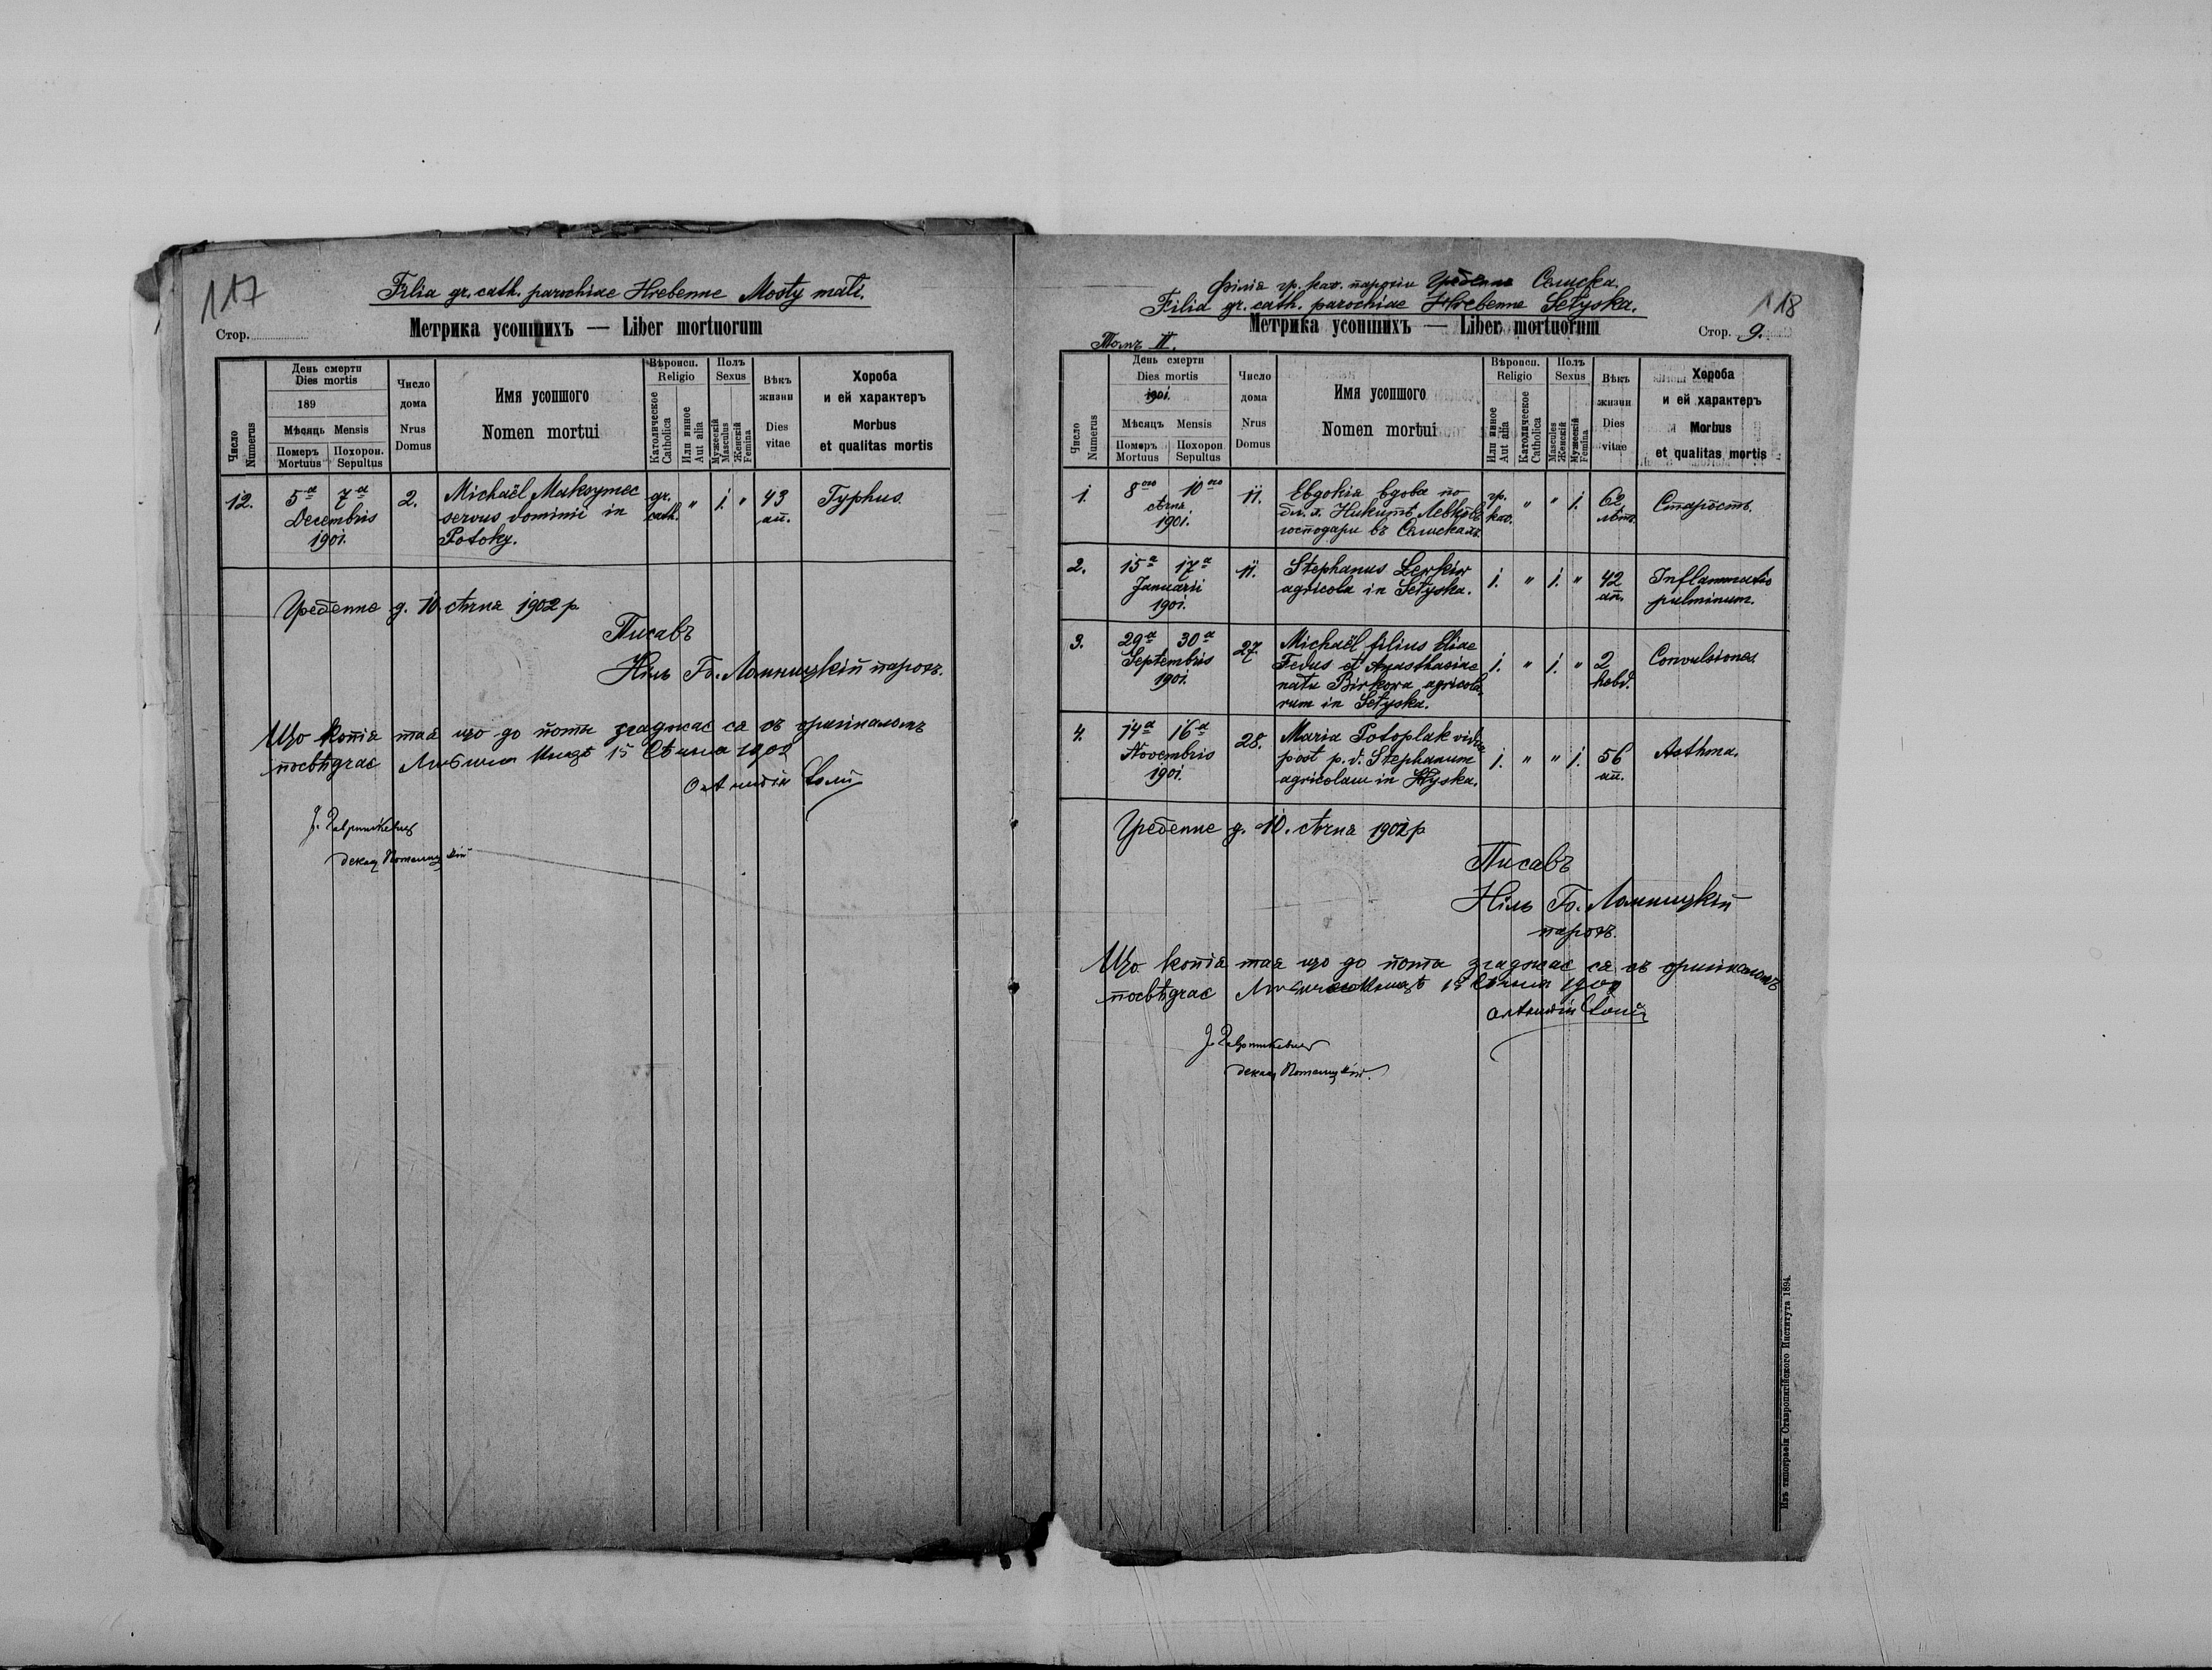 117
Filia gr. cath. parochiae Hrebenne Mosty małe.
Стор.
Метрика усопшихъ — Liber mortuorum
Число Numerus
День смерти Dies mortis
189
Мѣсяць Mensis
Померъ Mortuus
Похорон. Sepultus
Число дома Nrus Domus
Имя усопшого Nomen mortui
Вѣроисп. Religio
Католическое Catholica
Или инное Aut alia
Полъ Sexus
Мужескій Masculus
Женскій Femina
Вѣкъ жизни Dies vitae
Хороба и ей характеръ
Morbus et qualitas mortis
12. 5a 7a Decembris 1901. 2.
Michaël Maksymec
servus dominii in
Potoky.
gr. cath. " 1. " 43 an. Typhus.
Гребенне д. 10 сѣчня 1902 р
Писавъ
Ніль Го. Ломницкій парох.
Що копія тая що до йоты згаджає ся съ оригіналомъ
посвѣдчає
15 1902
118
Філія гр. кат. парохіи Гребенне Селиска.
Filia gr. cath. parochiae Hrebenne Sełyska.
Метрика усопшихъ — Liber mortuorum
Стор. 9.
Томъ II.
Число Numerus
День смерти Dies mortis
1901.
Мѣсяцъ Mensis
Померъ Mortuus
Похорон. Sepultus
Число дома Nrus Domus
Имя усопшого Nomen mortui
Вѣроисп. Religio
Или инное Aut alia
Католическое Catholica
Полъ Sexus
Masculus Женскій
Мужескій Femina
Вѣкъ жизни Dies vitae
Хороба и ей характеръ
Morbus et qualitas mortis
1. 8ого 10ого сѣчня 1901. 11.
Евдокія вдова по
бл. п. Никитѣ Левкѣвъ
господари въ Селискахъ.
гр. кат. " " 1. 62 лѣтъ. Старость.
2. 15a 17a Januarii 1901. 11.
Stephanus Lewkiw
agricola in Sełyska.
1. " 1. " 42 an. Inflammatio pulminum.
3. 29a 30a Septembris 1901. 27.
Michaël filius Eliae
Fedus et Anasthasiae
nata Birkowa agricola-
rum in Sełyska.
1. " 1. " 2 hebd. Convulsiones.
4. 14a 16a Novembris 1901. 28.
Maria Potoplak vidua
post p. d. Stephanum
agricolam in Sełyska.
1. " " 1. 56 an. Asthma.
Гребенне д. 10. сѣчня 1902 р
Писавъ
Ніль Го. Ломницкій
парох.
Що копія тая що до йоты згаджає ся съ оригіналомъ
посвѣдчає
Изъ типографіи Ставропигійского Института 1894.